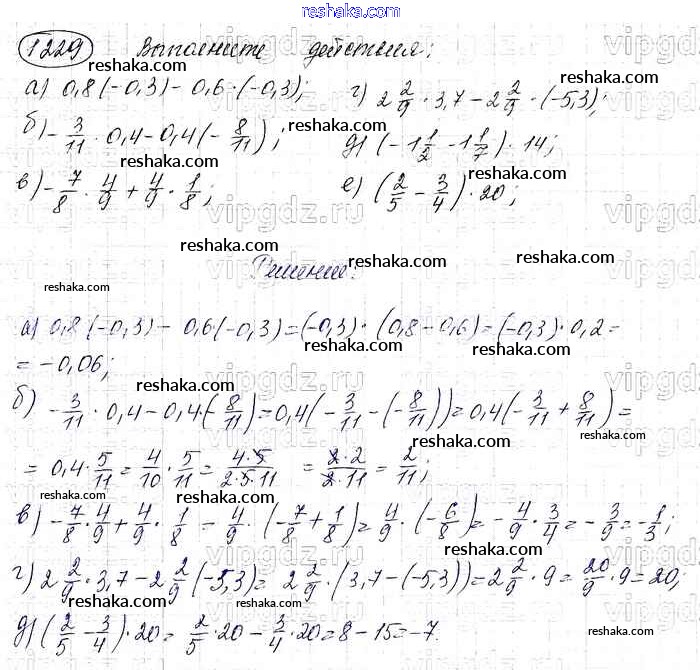 reshaka.com
1229 Выполните действия:
а) 0,8(-0,3) - 0,6·(-0,3);
б) -3/11 · 0,4 - 0,4(-8/11);
в) -7/8 · 4/9 + 4/9 · 1/8;
г) 2 2/9 · 3,7 - 2 2/9 · (-5,3);
д) (-1 1/2 - 1 1/7) · 14;
е) (2/5 - 3/4) · 20;
Решение:
а) 0,8(-0,3) - 0,6(-0,3) = (-0,3) · (0,8 - 0,6) = (-0,3) · 0,2 =
= -0,06;
б) -3/11 · 0,4 - 0,4·(-8/11) = 0,4(-3/11 - (-8/11)) = 0,4(-3/11 + 8/11) =
= 0,4 · 5/11 = 4/10 · 5/11 = 4·5/2·5·11 = 2·2/2·11 = 2/11;
в) -7/8 · 4/9 + 4/9 · 1/8 = 4/9 · (-7/8 + 1/8) = 4/9 · (-6/8) = -4/9 · 3/4 = -3/9 = -1/3;
г) 2 2/9 · 3,7 - 2 2/9 (-5,3) = 2 2/9 · (3,7 - (-5,3)) = 2 2/9 · 9 = 20/9 · 9 = 20;
д) (2/5 - 3/4) · 20 = 2/5 · 20 - 3/4 · 20 = 8 - 15 = -7.
reshaka.com